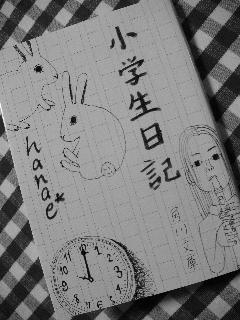 小学生日記
hanae*
角川文庫
12
1
2
3
4
5
6
7
8
9
10
11